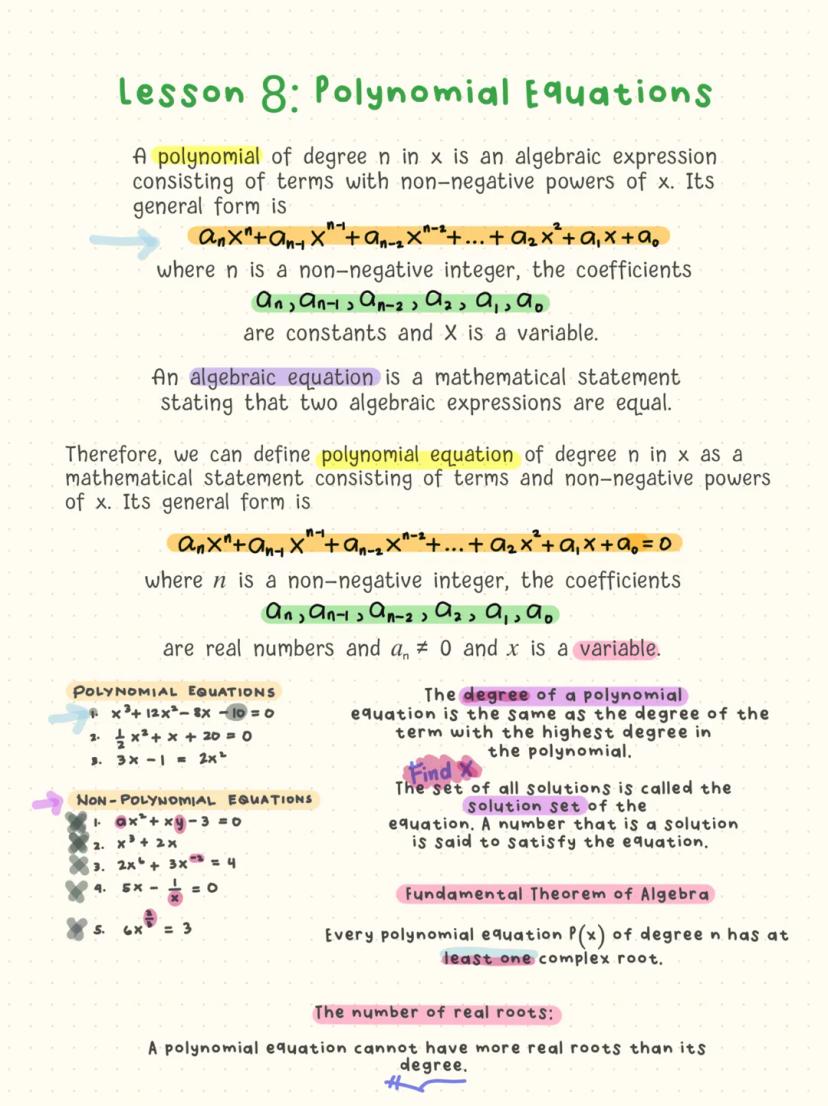 Lesson 8: Polynomial Equations
A polynomial of degree n in x is an algebraic expression
consisting of terms with non-negative powers of x. Its
general form is
aₙxⁿ+aₙ₋₁xⁿ⁻¹+aₙ₋₂xⁿ⁻²+...+a₂x²+a₁x+a₀
where n is a non-negative integer, the coefficients
aₙ,aₙ₋₁,aₙ₋₂,a₂,a₁,a₀
are constants and X is a variable.
An algebraic equation is a mathematical statement
stating that two algebraic expressions are equal.
Therefore, we can define polynomial equation of degree n in x as a
mathematical statement consisting of terms and non-negative powers
of x. Its general form is
aₙxⁿ+aₙ₋₁xⁿ⁻¹+aₙ₋₂xⁿ⁻²+...+a₂x²+a₁x+a₀=0
where n is a non-negative integer, the coefficients
aₙ,aₙ₋₁,aₙ₋₂,a₂,a₁,a₀
are real numbers and aₙ ≠ 0 and x is a variable.
POLYNOMIAL EQUATIONS
1. x³+12x²-8x-10=0
2. ½x²+x+20=0
3. 3x-1 = 2x²
NON-POLYNOMIAL EQUATIONS
1. ax²+xy-3=0
2. x³+2x
3. 2x⁶+3x⁻²=4
4. 5x-1/x=0
5. 6x = 3
The degree of a polynomial
equation is the same as the degree of the
term with the highest degree in
the polynomial.
Find X
The set of all solutions is called the
solution set of the
equation. A number that is a solution
is said to satisfy the equation.
Fundamental Theorem of Algebra
Every polynomial equation P(x) of degree n has at
least one complex root.
The number of real roots:
A polynomial equation cannot have more real roots than its
degree.